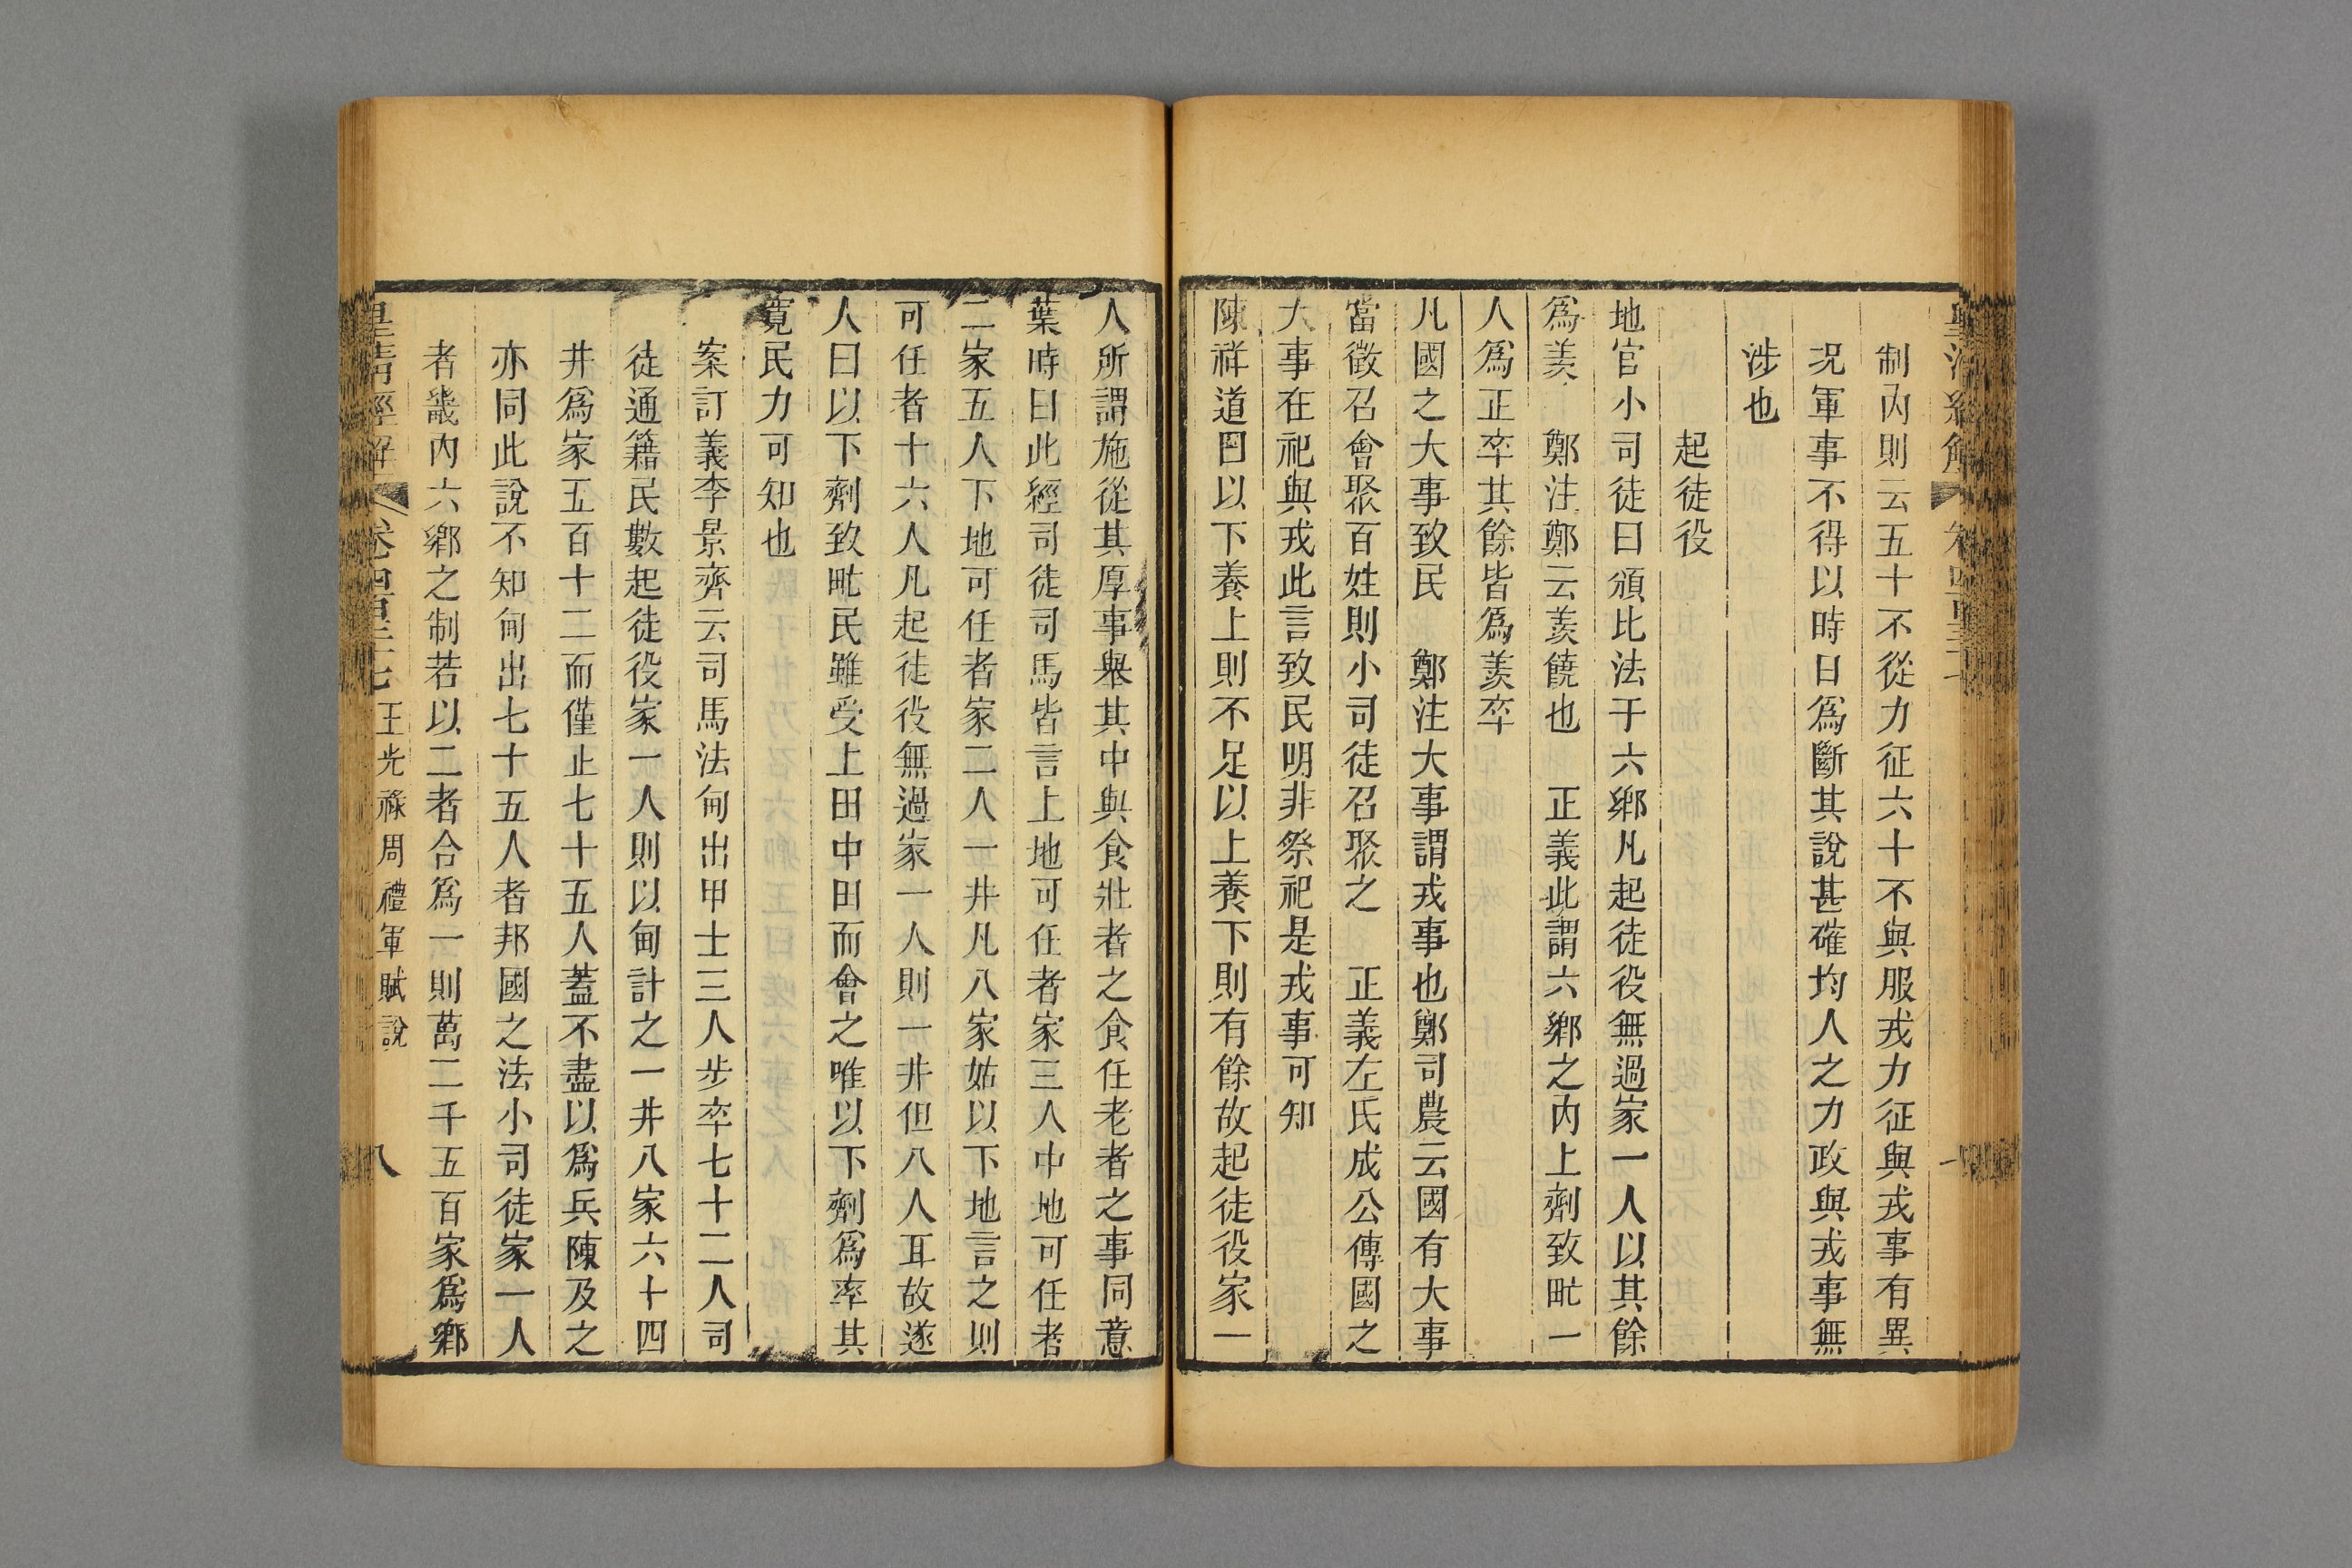 制內則云五十不從力征六十不與服戎力征與戎事有異
況軍事不得以時日爲斷其說甚確均人之力政與戎事無
涉也
起徒役
地官小司徒曰頒比法于六鄕凡起徒役無過家一人以其餘
爲羨 鄭注鄭云羨饒也 正義此謂六鄕之內上劑致甿一
人爲正卒其餘皆爲羨卒
凡國之大事致民 鄭注大事謂戎事也鄭司農云國有大事
當徵召會聚百姓則小司徒召聚之 正義左氏成公傳國之
大事在祀與戎此言致民明非祭祀是戎事可知
陳祥道曰以下養上則不足以上養下則有餘故起徒役家一
人所謂施從其厚事舉其中與食壯者之食任老者之事同意
葉時曰此經司徒司馬皆言上地可任者家三人中地可任者
二家五人下地可任者家二人一井凡八家姑以下地言之則
可任者十六人凡起徒役無過家一人則一井但八人耳故遂
人曰以下劑致甿民雖受上田中田而會之唯以下劑爲率其
寬民力可知也
案訂義李景齊云司馬法甸出甲士三人步卒七十二人司
徒通籍民數起徒役家一人則以甸計之一井八家六十四
井爲家五百十二而僅止七十五人蓋不盡以爲兵陳及之
亦同此說不知甸出七十五人者邦國之法小司徒家一人
者畿內六鄕之制若以二者合爲一則萬二千五百家爲鄕
皇清經解 卷四百二十七 王光祿周禮軍賦說 八